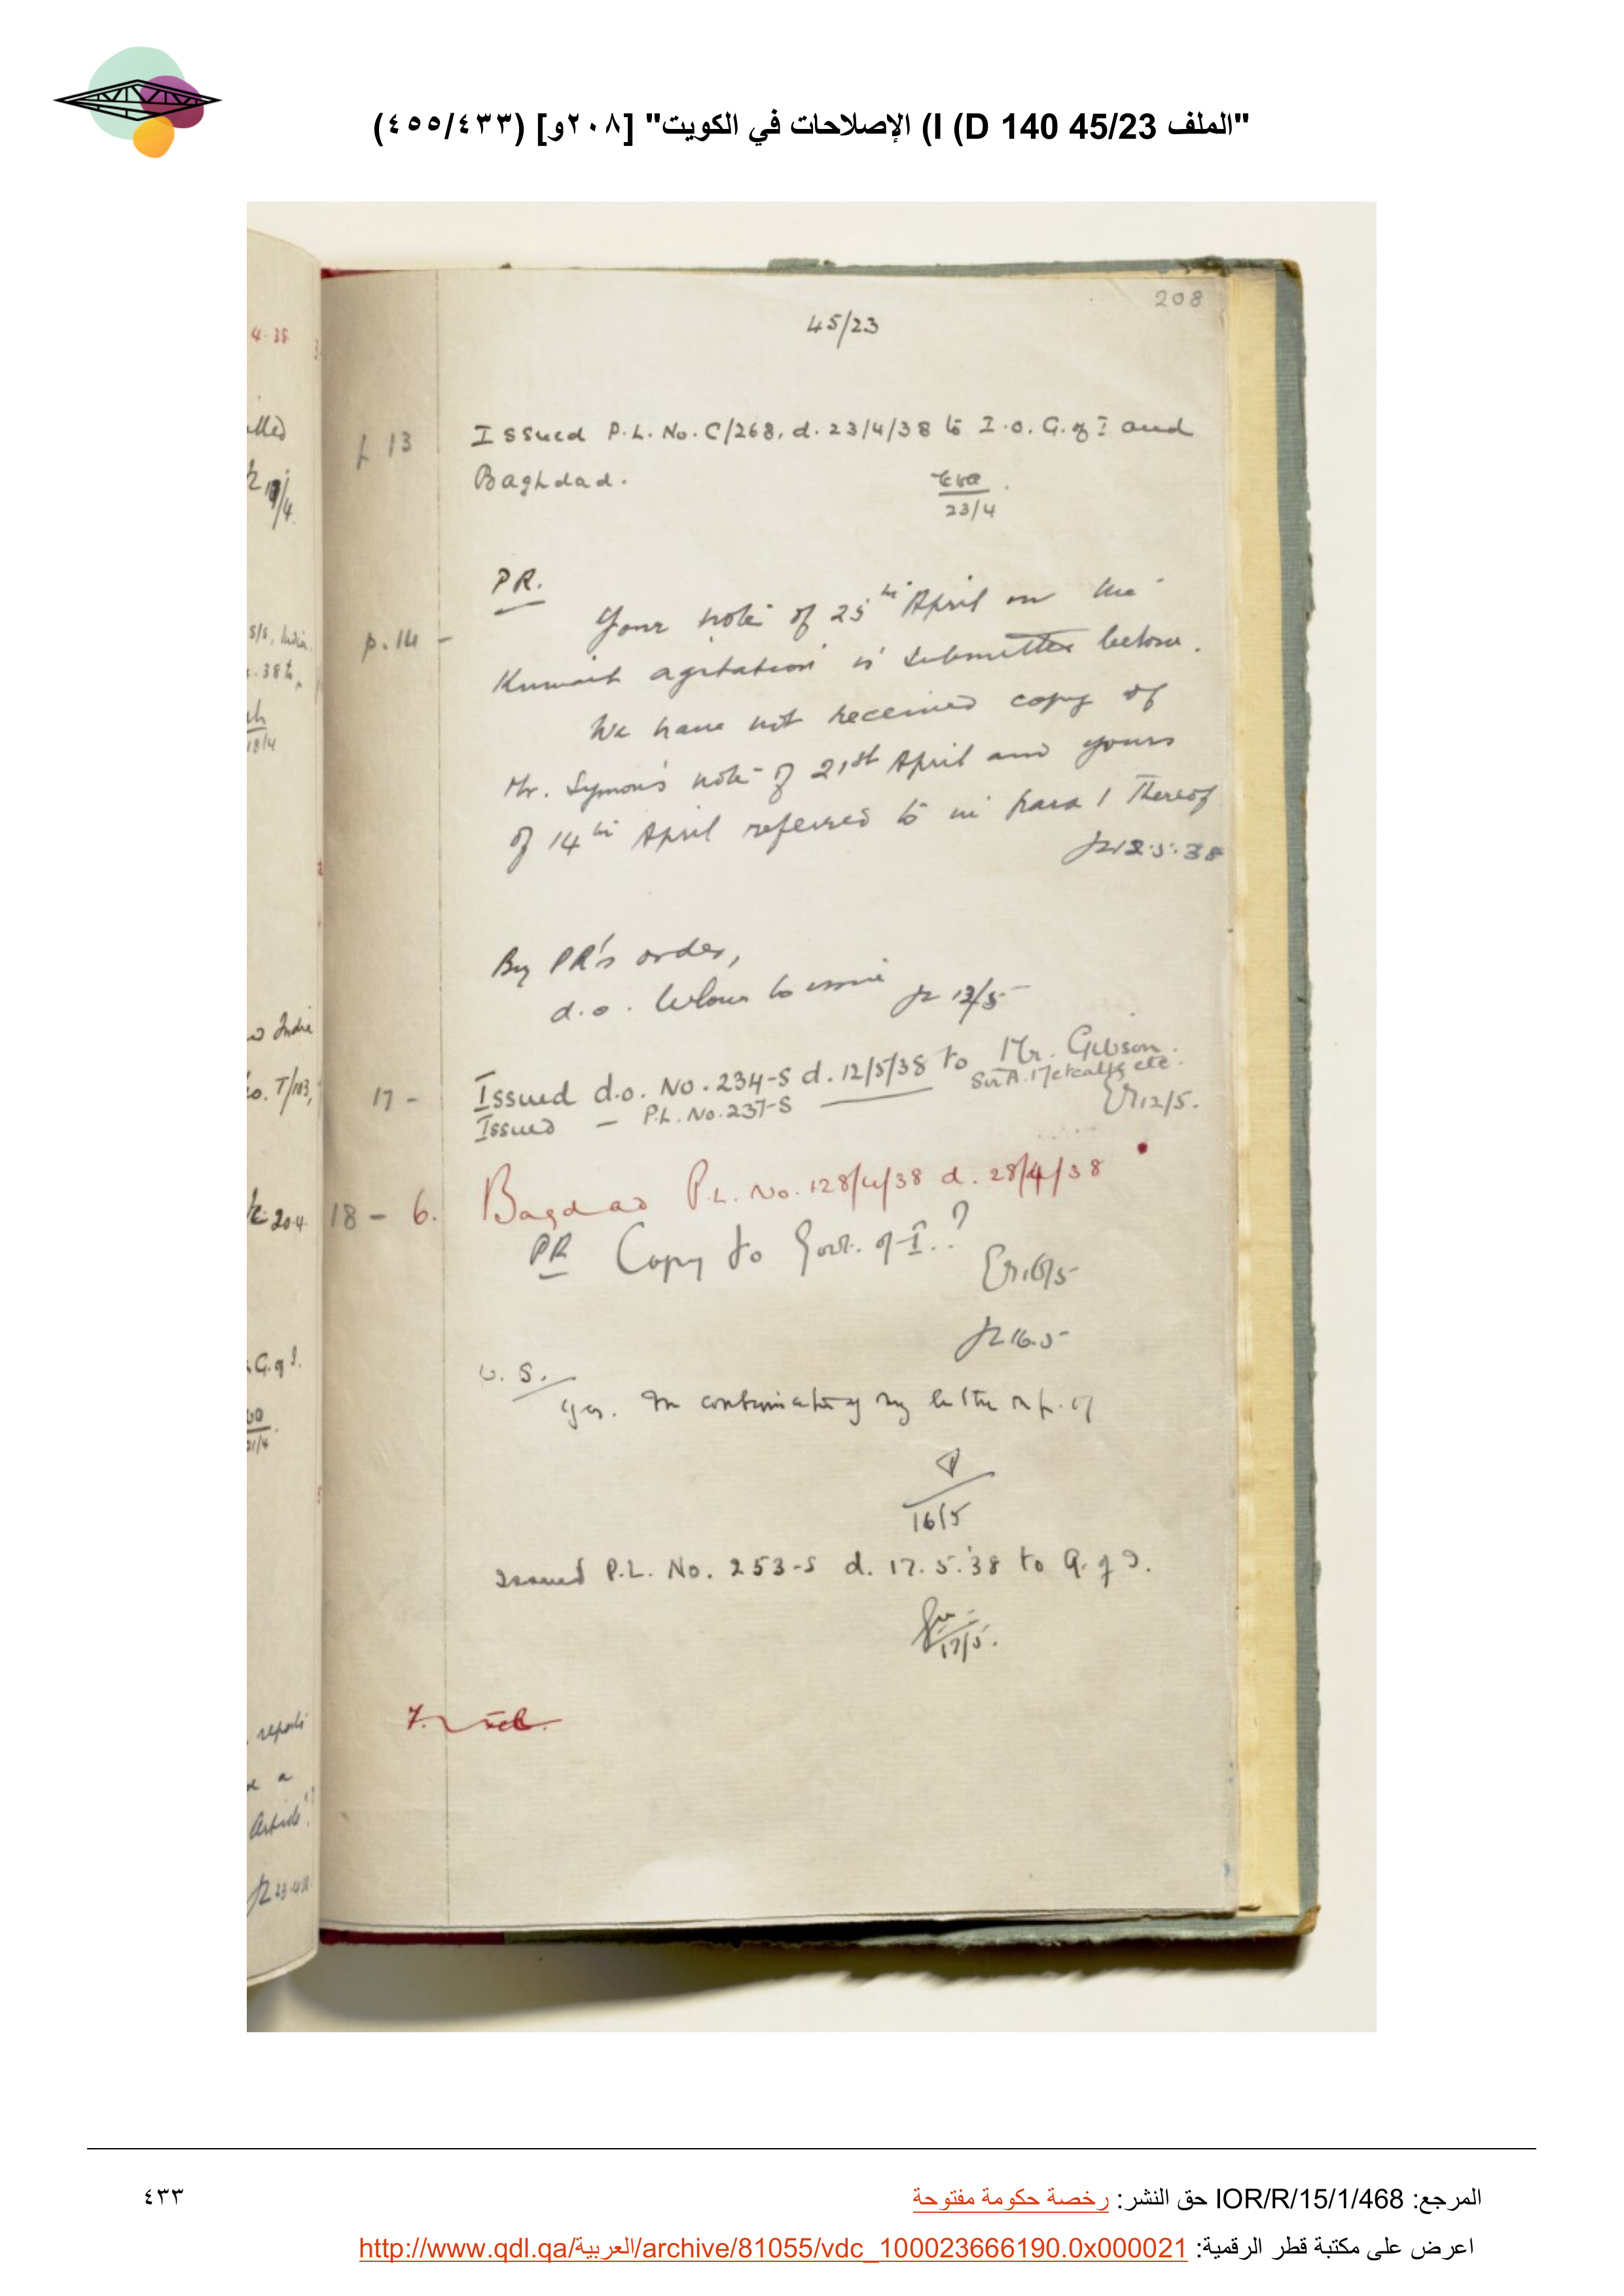 "الملف 45/23 I (D 140) الإصلاحات في الكويت" [٢٠٨و] (٤٥٥/٤٣٣)
208
45/23
13 Issued P.L. No. C/268, d. 23/4/38 to I.O. G. of I and
Baghdad.
23/4
PR.
p. 14 - Your note of 25th April on the
Kuwait agitation is submitted below.
We have not received copy of
Mr. Symon's note of 21st April and yours
of 14th April referred to in para 1 thereof
12.5.38
By PR's order,
d.o. below to issue 12/5
17 - Issued d.o. No. 234-S d. 12/5/38 to Mr. Gibson.
Sir A. Metcalfe etc.
Issued — P.L. No. 237-S —
12/5.
18 - 6. Bagdad P.L. No. 128/4/38 d. 28/4/38
PR Copy to Govt. of I.?
16/5
16.5
U.S.
Yes. In continuation of my letter
16/5
Issued P.L. No. 253-S d. 17.5.38 to G. of I.
17/5.
7.
4.38
19/4
s/s, India
. 38 to
18/4
India
No. T/103,
20.4
G. of I.
21/4
reports
a
Article"?
23.4.38
المرجع: IOR/R/15/1/468 حق النشر: رخصة حكومة مفتوحة
٤٣٣
اعرض على مكتبة قطر الرقمية: http://www.qdl.qa/العربية/archive/81055/vdc_100023666190.0x000021